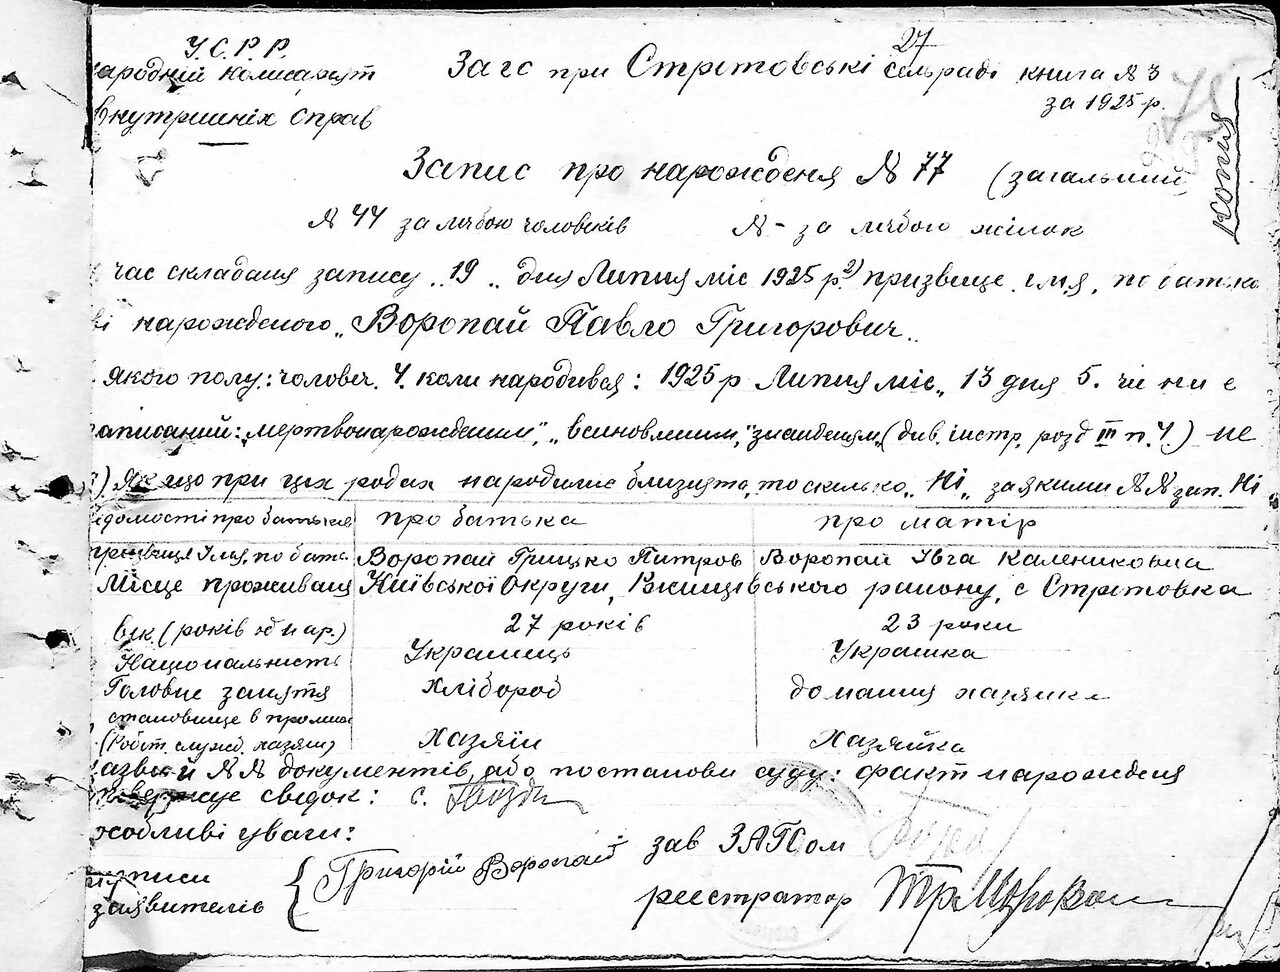 У.С.Р.Р.
ародній комісаріят
внутришніх справ
27
Загс при Стрітовські сельраді книга № 3
за 1925 р.
75
копія
Запис про нарождения № 77 (загальний
№ 44 за лічбою чоловіків № - за лічбою жінок
час складаня запису „19„ дня Липня міс 1925 р. 2) призвище, імя, по батько
ві нарожденого „Воропай Павло Григорович„
якого полу: чоловіч. 4. коли народився: 1925 р Липня міс „13 дня 5. чи ни є
аписаний: „мертвонарожденим", „всиновленим", „знайденим„ (див. інстр. розд III п. 4.) не
) Якщо при ціх родах народилис близнята, то скилько „Ні„ за якими №№ зап. Ні
ідомості про батьків про батька про матір
призвища Імя, по бать. Воропай Грицько Питров Воропай Ївга Калениковна
Місце проживаня Київської Округи, Ржищівського району, с Стрітовка
вік (років 27 років 23 роки
Національність Українець Українка
Головне заняття Хлібороб домашня хазяйка
становище в промис
(Робіт. служб. хазяін) Хазяїн Хазяйка
азви й №№ документів, або постанови суду: факт нарождения
ствержує свідок: с.
жобливі уваги:
ідписи
заявителів
Григорій Воропай
зав ЗАГСом
реєстратор